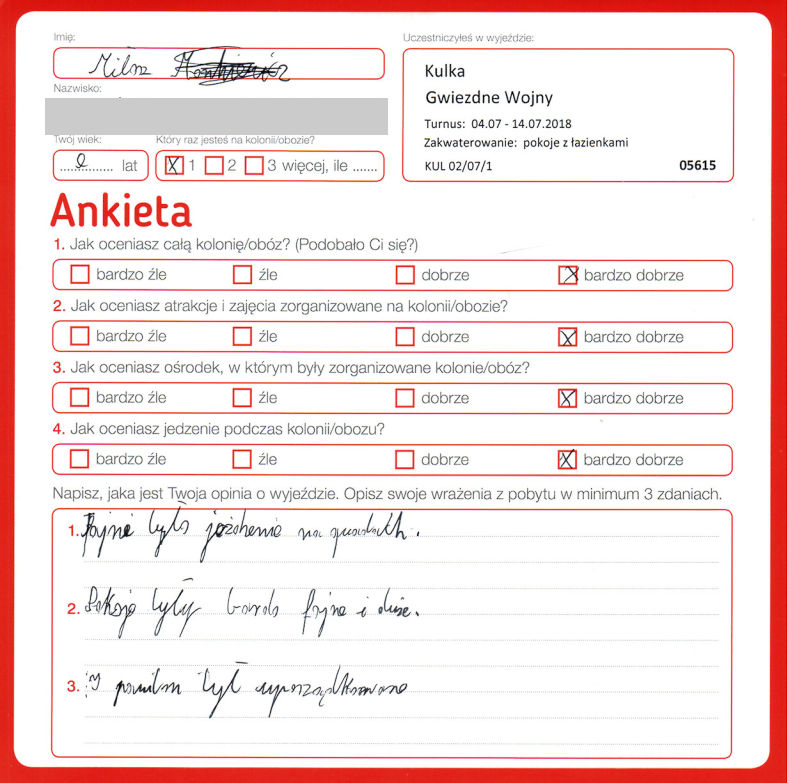 Imię:
Uczestniczyłeś w wyjeździe:
Miłosz
Kulka
Nazwisko:
Gwiezdne Wojny
Turnus: 04.07 - 14.07.2018
Twój wiek:
Który raz jesteś na kolonii/obozie?
Zakwaterowanie: pokoje z łazienkami
lat
X 1 2 3 więcej, ile .......
KUL 02/07/1
05615
Ankieta
1. Jak oceniasz całą kolonię/obóz? (Podobało Ci się?)
bardzo źle źle dobrze X bardzo dobrze
2. Jak oceniasz atrakcje i zajęcia zorganizowane na kolonii/obozie?
bardzo źle źle dobrze X bardzo dobrze
3. Jak oceniasz ośrodek, w którym były zorganizowane kolonie/obóz?
bardzo źle źle dobrze X bardzo dobrze
4. Jak oceniasz jedzenie podczas kolonii/obozu?
bardzo źle źle dobrze X bardzo dobrze
Napisz, jaka jest Twoja opinia o wyjeździe. Opisz swoje wrażenia z pobytu w minimum 3 zdaniach.
1. Fajne było na
2. były fajne i duże.
3. był uporządkowane